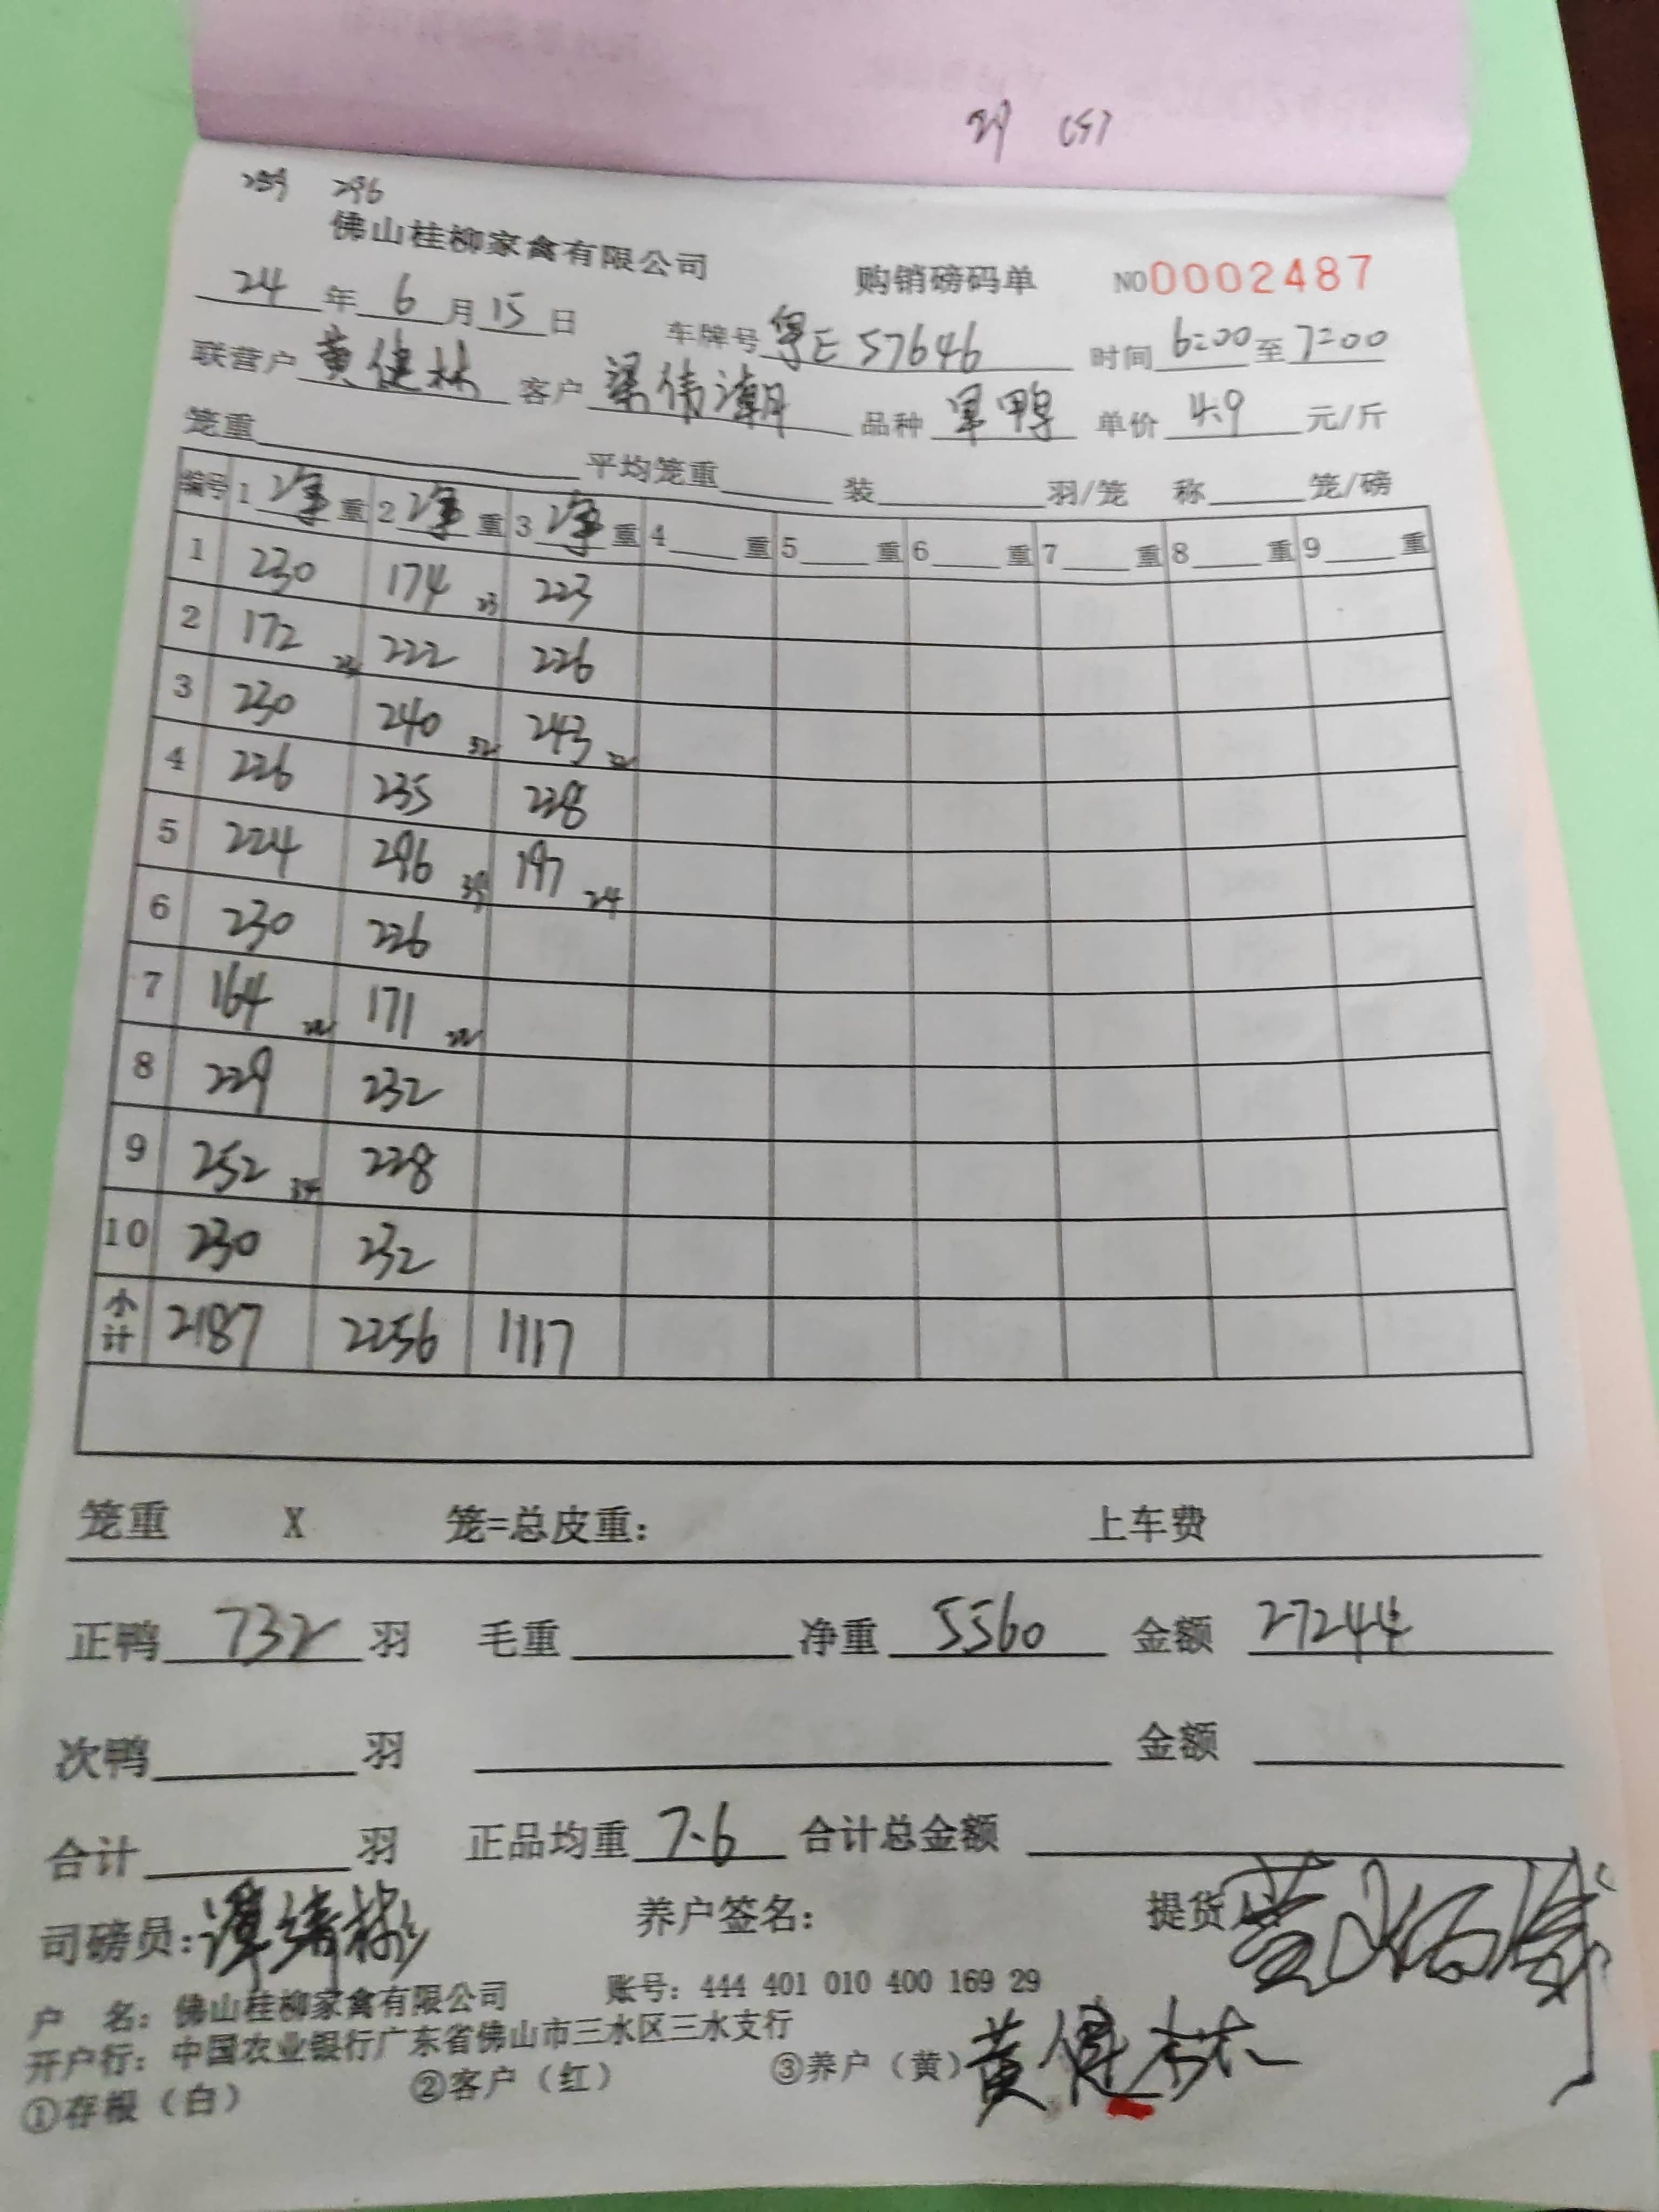 296
佛山桂柳家禽有限公司 购销磅码单 NO0002487
24年6月15日 车牌号粤E 57646 时间6:00至7:00
联营户黄健林 客户梁伟潮 品种 单价4.9元/斤
笼重 平均笼重 装 羽/笼 称 笼/磅
编号 1净重 2净重 3净重 4 重 5 重 6 重 7 重 8 重 9 重
1 230 174 23 223
2 172 222 226
3 230 240 32 243 32
4 226 235 228
5 224 296 39 197 24
6 230 226
7 164 22 171 22
8 229 232
9 252 34 228
10 230 232
小计 2187 2256 1117
笼重 X 笼=总皮重: 上车费
正鸭732羽 毛重 净重5560 金额27244
次鸭 羽 金额
合计 羽 正品均重7.6 合计总金额
司磅员: 养户签名: 提货人:
户 名: 佛山桂柳家禽有限公司 账号: 444 401 010 400 169 29
开户行: 中国农业银行广东省佛山市三水区三水支行
①存根（白） ②客户（红） ③养户（黄） 黄健林